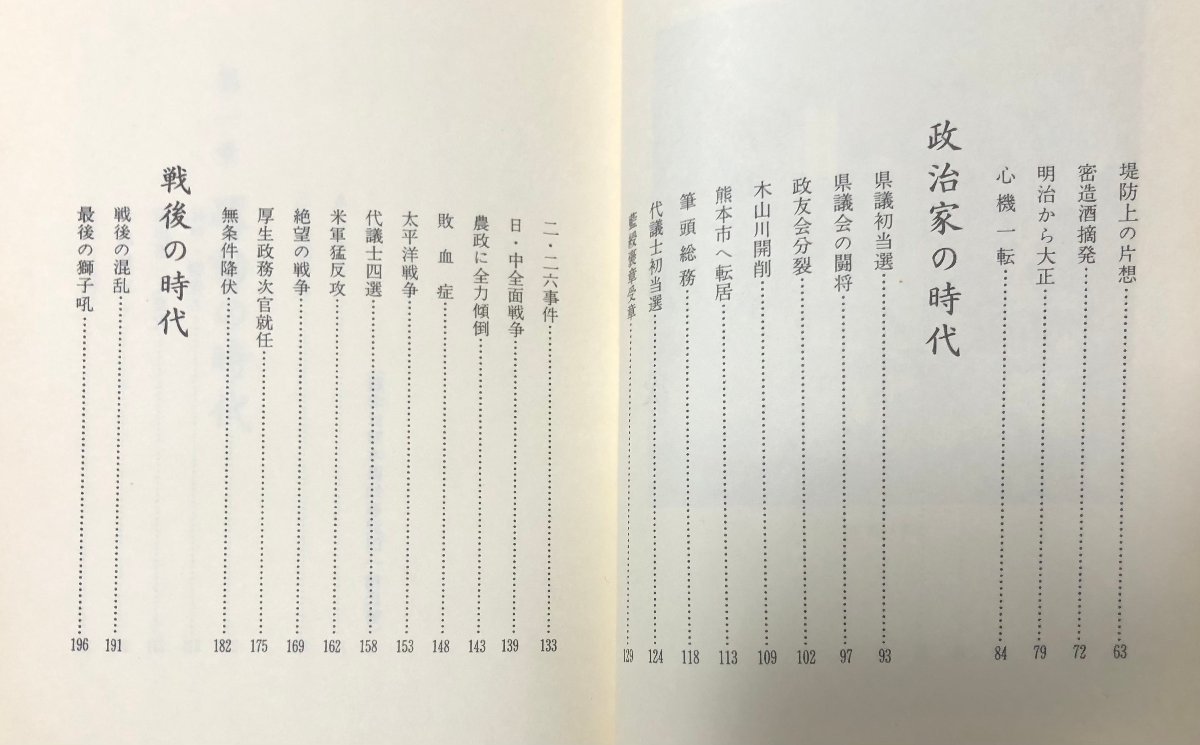 堤防上の片想……63
密造酒摘発……72
明治から大正……79
心機一転……84
政治家の時代
県議初当選……93
県議会の闘将……97
政友会分裂……102
木山川開削……109
熊本市へ転居……113
筆頭総務……118
代議士初当選……124
藍綬褒章受章……129
二・二六事件……133
日・中全面戦争……139
農政に全力傾倒……143
敗血症……148
太平洋戦争……153
代議士四選……158
米軍猛反攻……162
絶望の戦争……169
厚生政務次官就任……175
無条件降伏……182
戦後の時代
戦後の混乱……191
最後の獅子吼……196